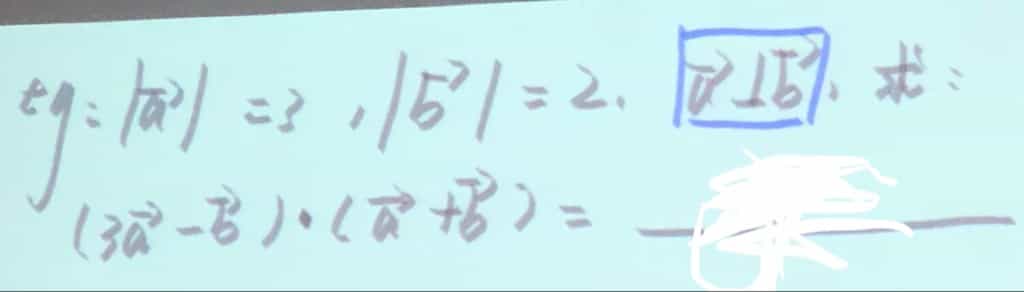 eg: |a⃗| = 3, |b⃗| = 2. a⃗⊥b⃗, 求:
(3a⃗ - b⃗)·(a⃗ + b⃗) =